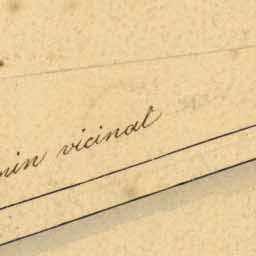 min vicinal